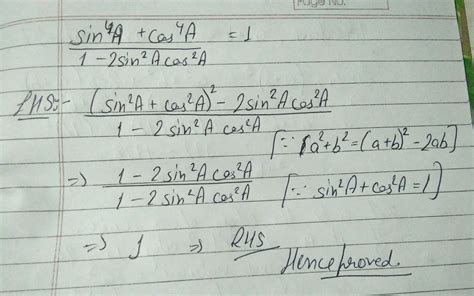 Page No.
sin⁴A + cos⁴A / 1 - 2sin²A cos²A = 1
LHS:- (sin²A + cos²A)² - 2sin²A cos²A / 1 - 2 sin²A cos²A
[∵ (a²+b² = (a+b)² - 2ab]
=> 1 - 2 sin²A cos²A / 1 - 2 sin²A cos²A [∵ sin²A + cos²A = 1]
=> 1 => RHS
Hence proved.